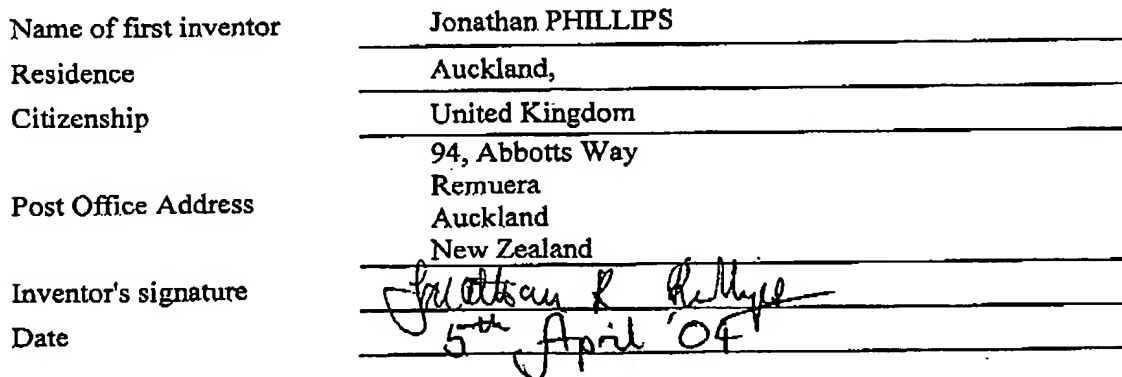 Name of first inventor Jonathan PHILLIPS
Residence Auckland,
Citizenship United Kingdom
Post Office Address 94, Abbotts Way
Remuera
Auckland
New Zealand
Inventor's signature Jonathan R Phillips
Date 5th April '04